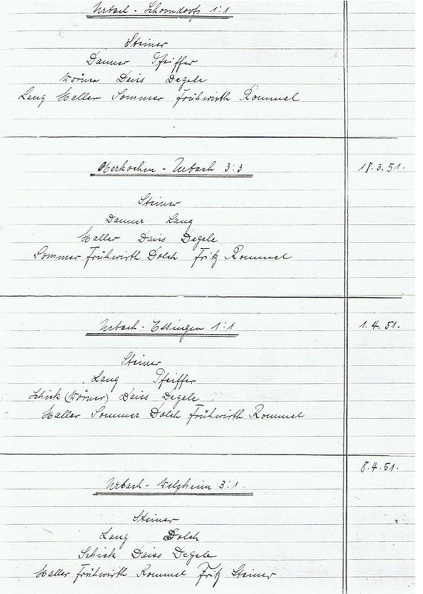 Urbach - Schorndorf 1:1
Steiner
Danner Pfeiffer
Wörner Daiss Degele
Lang Haller Sommer Frühwirth Rommel
Oberkochen - Urbach 3:3 18.3.51.
Steiner
Danner Lang
Haller Daiss Degele
Sommer Frühwirth Dolch Fritz Rommel
Urbach - Ettingen 1:1 1.4.51.
Steiner
Lang Pfeiffer
Schiek (Wörner) Daiss Degele
Haller Sommer Dolch Frühwirth Rommel
8.4.51.
Urbach - Welzheim 3:1
Steiner
Lang Dolch
Schiek Daiss Degele
Haller Frühwirth Rommel Fritz Steiner